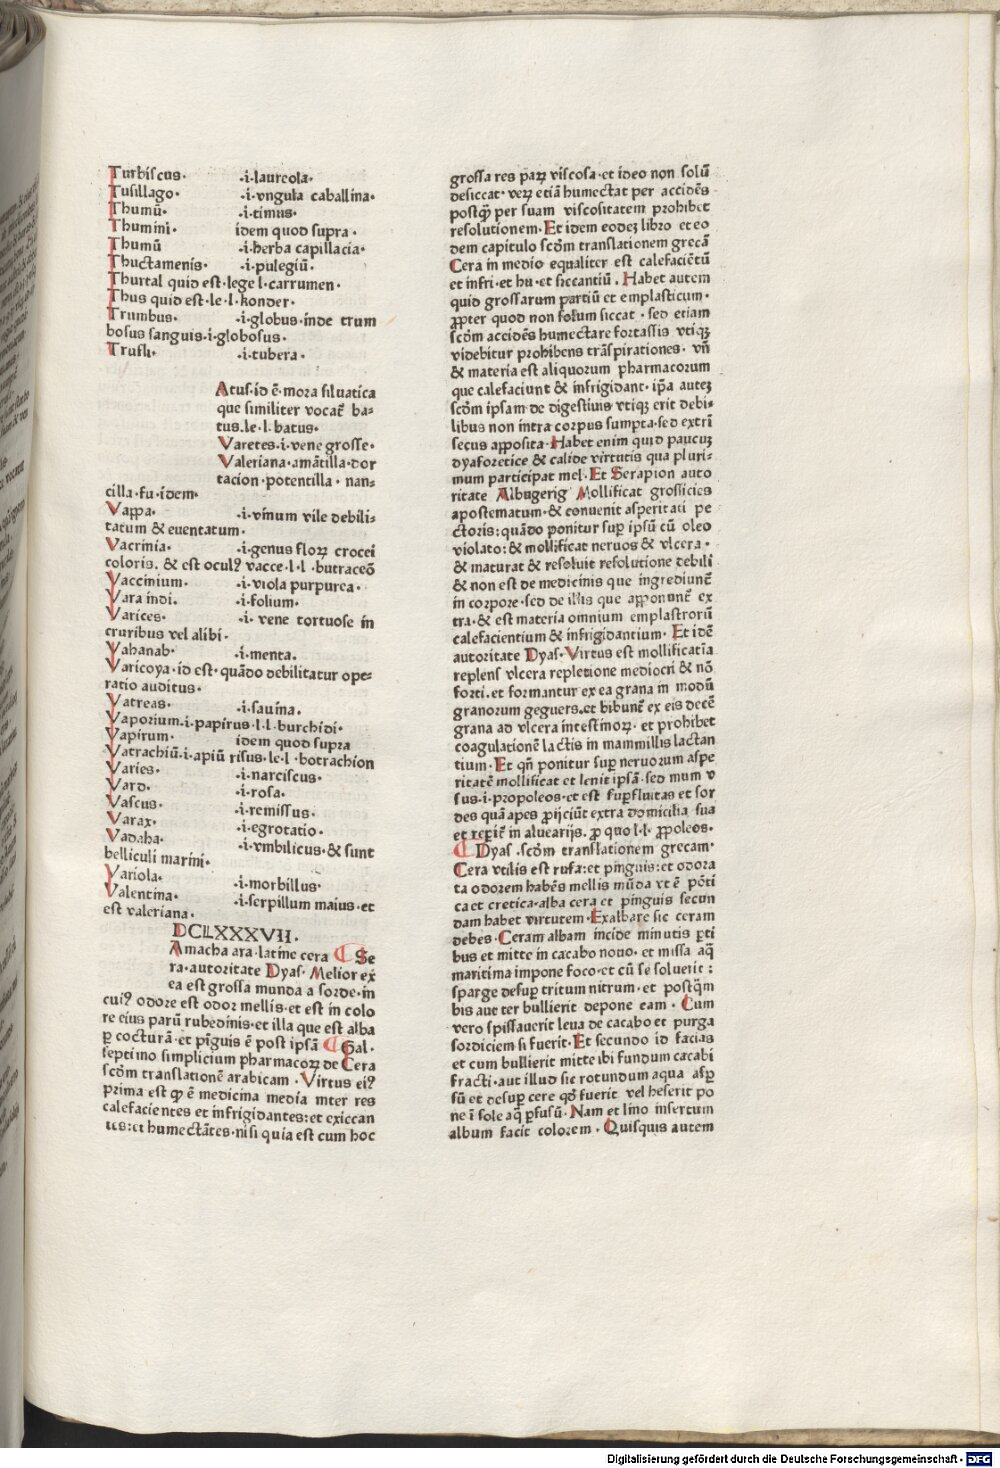 Turbiscus· ·i·laureola·
Tusillago· ·i·vngula caballina·
Thumū· ·i·timus·
Thumini· idem quod supra·
Thumū ·i·herba capillacia·
Thuctamenis· ·i·pulegiū·
Thurtal quid est·lege l·carrumen·
Thus quid est·le·l·konder·
Trumbus· ·i·globus·inde trum
bosus sanguis·i·globosus·
Trufli· ·i·tubera·
Atus·id ē·mora siluatica
que similiter vocat̄ ba⸗
tus·le·l·batus·
Varetes·i·vene grosse·
Valeriana·amātilla·dor
tacion·potentilla·nan⸗
cilla·fu·idem·
Vappa· ·i·vinum vile debili⸗
tatum & euentatum·
Vacrinia· ·i·genus floꝝ crocei
coloris. & est oculꝰ vacce·l·l·butraceō
Vaccinium· ·i·viola purpurea·
Vara indi. ·i·folium·
Varices· ·i· vene tortuose in
cruribus vel alibi·
Vahanab· ·i·menta.
Varicoya·id est·quādo debilitatur ope⸗
ratio auditus·
Vatreas· ·i·sauina.
Vaporium·i·papirus·l·l·burchidi·
Vapirum· idem quod supra
Vatrachiū·i·apiū risus·le·l·botrachion
Varies· ·i·narciscus·
Vard· ·i·rosa.
Vascus· ·i·remissus·
Varax· ·i·egrotatio·
Vadaha· ·i·vmbilicus·& sunt
belliculi marini·
Variola· ·i·morbillus·
Valentina· ·i·serpillum maius·et
est valeriana·
DCLXXXVII.
Amacha ara·latine cera ⸿ Se
ra·autoritate Dyas· Melior ex
ea est grossa munda a sorde·in
cuiꝰ odore est odor mellis·et est in colo
re eius parū rubedinis·et illa que est alba
ꝑ cocturā·et pīguis ē post ipsā ⸿ Gal·
septimo simplicium pharmacoꝝ de Cera
scd̄m translationē arabicam·Virtus eiꝰ
prima est ꝙ ē medicina media inter res
calefacientes et infrigidantes:et exiccan
tes:et humectātes·nisi quia est cum hoc
grossa res paꝝ viscosa·et ideo non solū
desiccat·veꝝ etiā humectat per accidēs·
postꝙ̄ per suam viscositatem prohibet
resolutionem·Et idem eodeꝫ libro et eo
dem capitulo scd̄m translationem grecā
Cera in medio equaliter est calefaciētū
et infri·et hu·et siccantiū. Habet autem
quid grossarum partiū et emplasticum·
ꝓpter quod non solum siccat·sed etiam
scd̄m accidēs humectare fortassis vtiqꝫ
videbitur prohibens trāspirationes·vn̄
& materia est aliquorum pharmacorum
que calefaciunt & infrigidant·ip̄a auteꝫ
scd̄m ipsam de digestiuis vtiqꝫ erit debi⸗
libus non intra corpus sumpta·sed extri
secus apposita·Habet enim quid paucuꝫ
dyaforetice & calide virtutis qua pluri⸗
mum participat mel·Et Serapion auto
ritate Albugerig Mollificat grossicies
apostematum·& conuenit asperitati pe
ctoris:quādo ponitur suꝑ ipsū cū oleo
violato:& mollificat neruos & vlcera·
& maturat & resoluit resolutione debili
& non est de medicinis que ingrediunt̄
in corpore·sed de illis que apponunt̄ ex
tra·& est materia omnium emplastrorū
calefacientium & infrigidantium·Et idē
autoritate Dyas·Virtus est mollificatīa
replens vlcera repletione mediocri & nō
forti.et formantur ex ea grana in modū
granorum geguers.et bibunt̄ ex eis decē
grana ad vlcera intestinoꝝ·et prohibet
coagulationē lactis in mammillis lactan
tium·Et qn̄ ponitur suꝑ neruorum aspe
ritatē mollificat et lenit ipsā·sed mum v
sus·i·propoleos·et est suꝑfluitas et sor
des quā apes ꝓijciūt extra domicilia sua
et reꝑit̄ in aluearijs. ꝓ quo l·l·ꝓpoleos·
⸿ Dyas .scd̄m translationem grecam·
Cera vtilis est rufa:et pinguis:et odora
ta odorem habēs mellis mūda vt ē pōti
ca et cretica·alba cera et pinguis secun
dam habet virtutem·Exalbare sic ceram
debes·Ceram albam incide minutis ꝑti
bus et mitte in cacabo nouo·et missa aq̄
maritima impone foco·et cū se soluerit:
sparge desuꝑ tritum nitrum·et postꝙ̄m
bis aut ter bullierit depone eam·Cum
vero spissauerit leua de cacabo et purga
sordiciem si fuerit·Et secundo id facias
et cum bullierit mitte ibi fundum cacabi
fracti·aut illud sic rotundum aqua asꝑ
sū et desuꝑ cere qd̄ fuerit vel heserit po
ne ī sole aq̄ ꝑfusū·Nam et lino insertum
album facit colorem·Quisquis autem
Digitalisierung gefördert durch die Deutsche Forschungsgemeinschaft - DFG